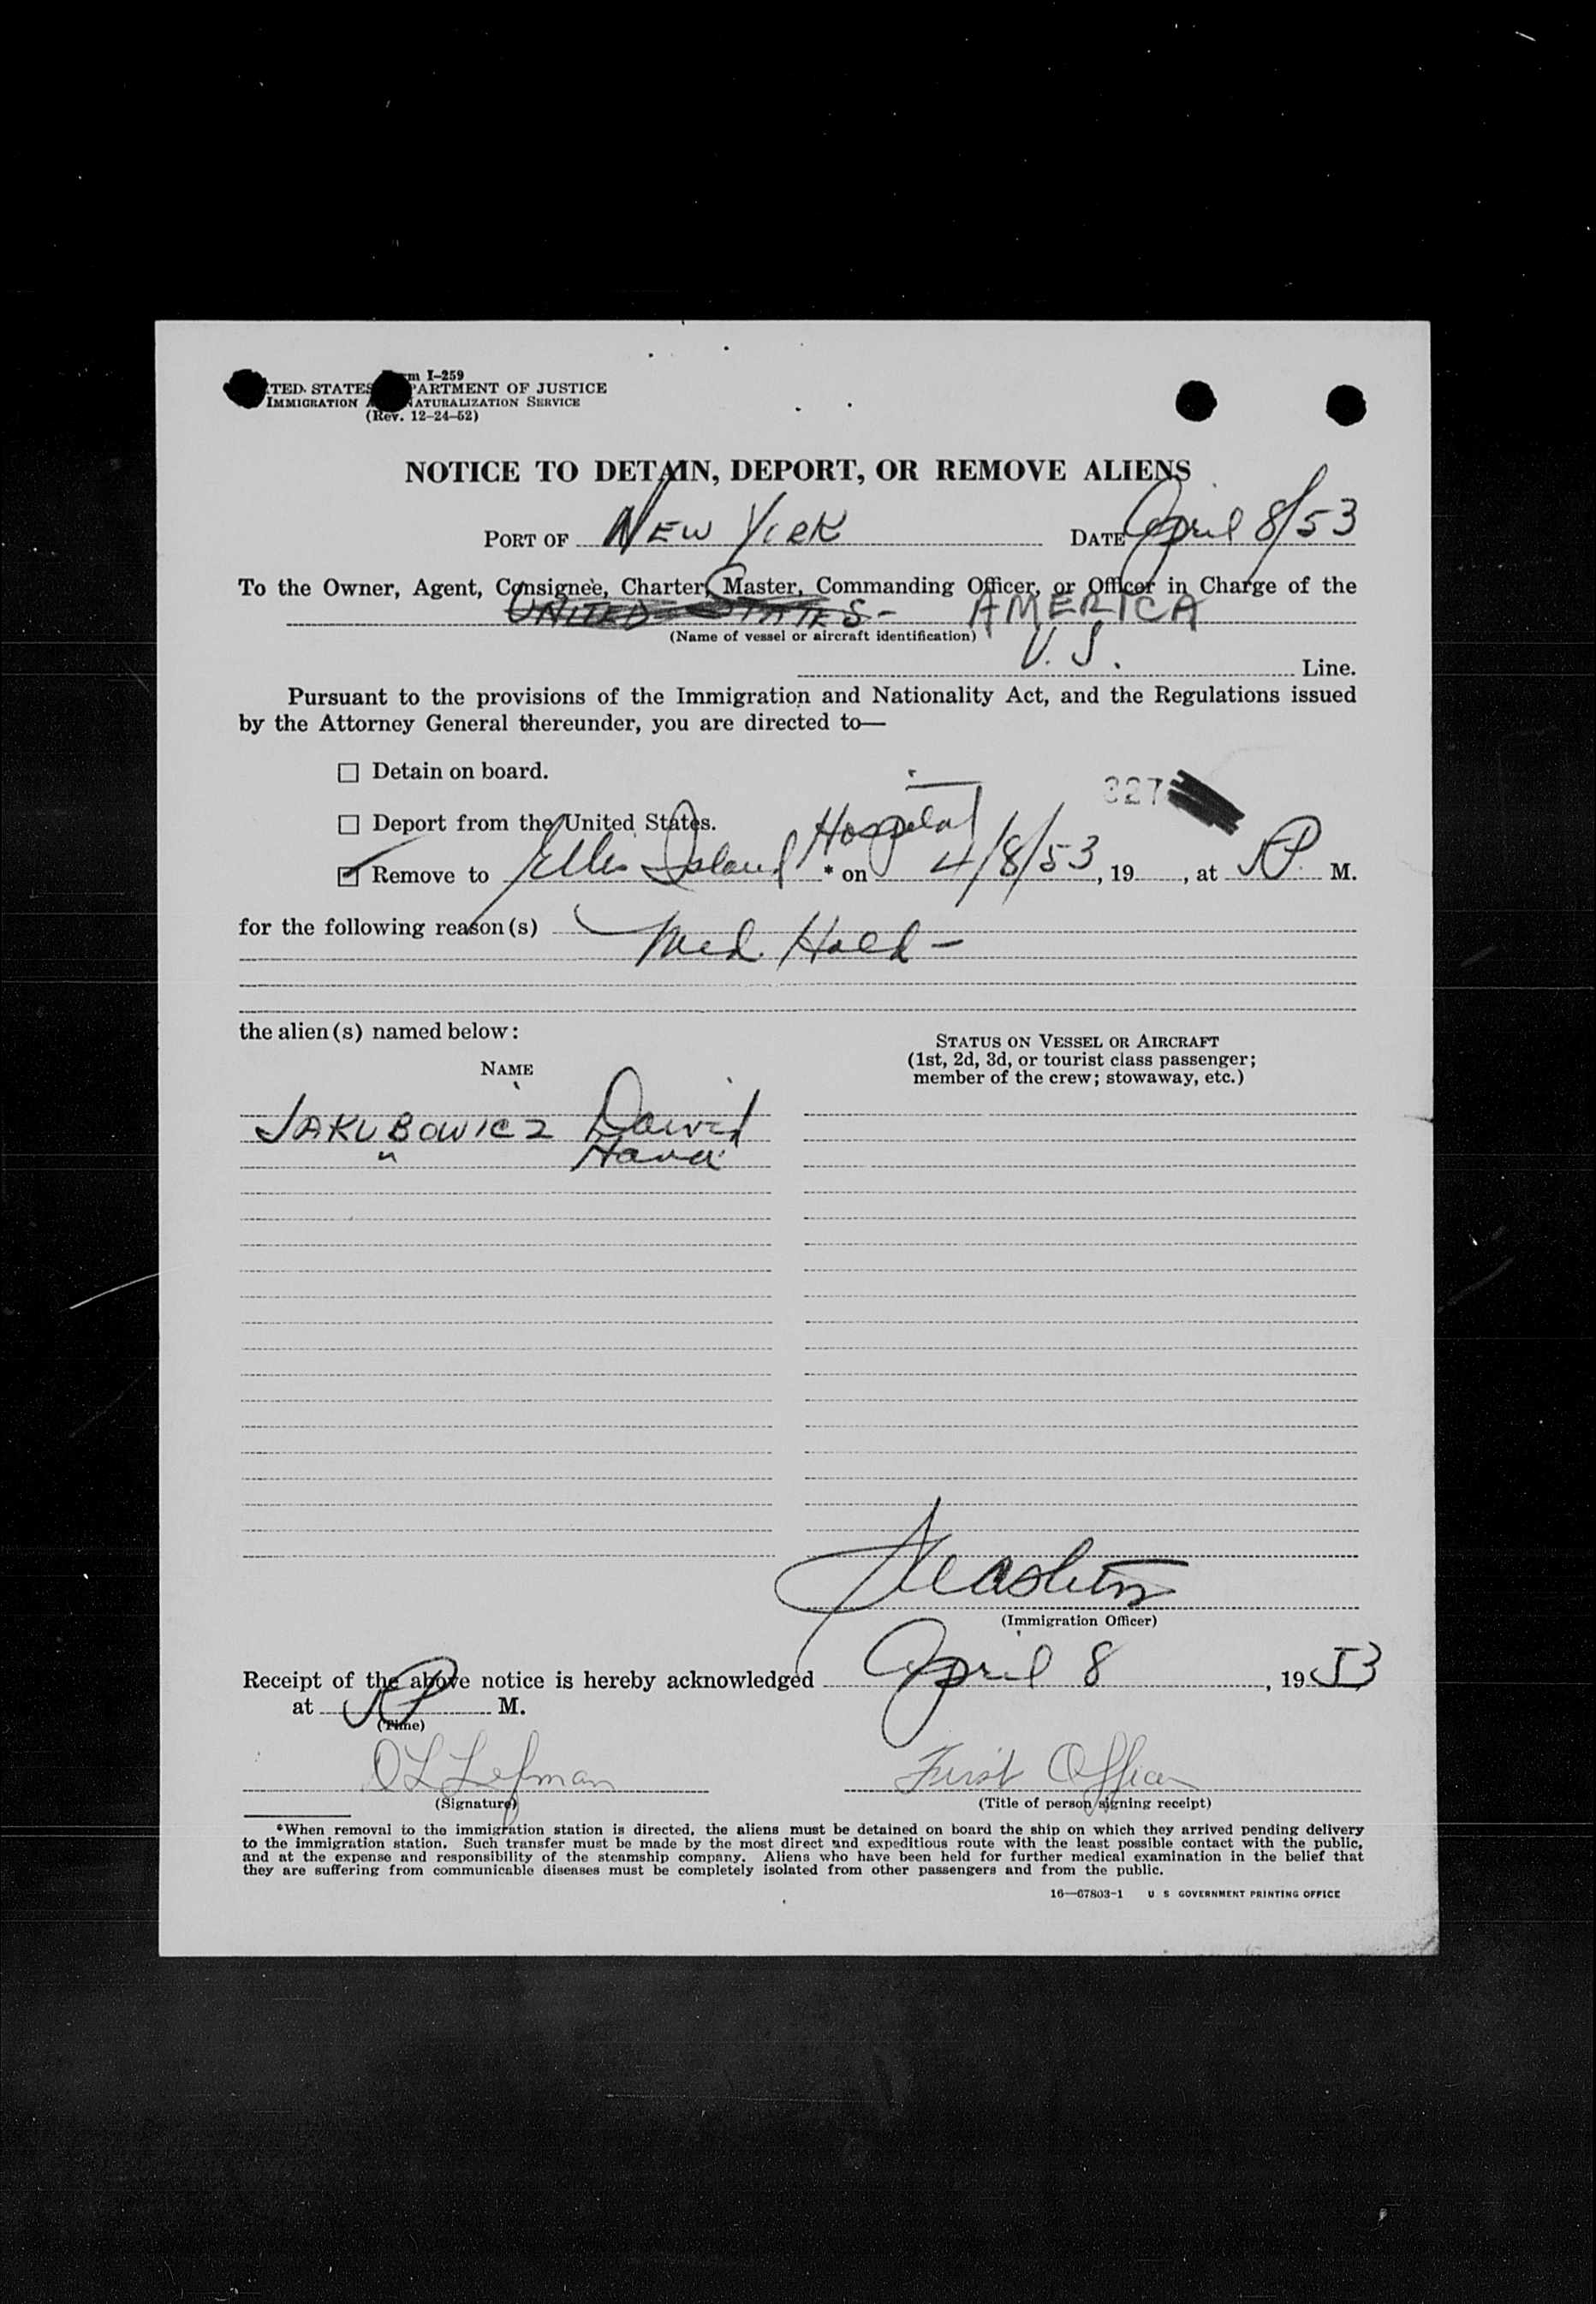 Form I-259
UNITED STATES DEPARTMENT OF JUSTICE
IMMIGRATION AND NATURALIZATION SERVICE
(Rev. 12-24-52)
NOTICE TO DETAIN, DEPORT, OR REMOVE ALIENS
PORT OF New York DATE April 8/53
To the Owner, Agent, Consignee, Charter, Master, Commanding Officer, or Officer in Charge of the
UNITED STATES - AMERICA
(Name of vessel or aircraft identification)
U. S. Line.
Pursuant to the provisions of the Immigration and Nationality Act, and the Regulations issued
by the Attorney General thereunder, you are directed to—
☐ Detain on board.
327
☐ Deport from the United States.
☑ Remove to Ellis Island Hospital * on 4/8/53, 19 , at P. M.
for the following reason(s)
Med. Hold -
the alien(s) named below:
NAME
STATUS ON VESSEL OR AIRCRAFT
(1st, 2d, 3d, or tourist class passenger;
member of the crew; stowaway, etc.)
JAKUBOWICZ Dawid
" Hava
(Immigration Officer)
Receipt of the above notice is hereby acknowledged April 8, 1953
at P M.
(Time)
First Officer
(Signature) (Title of person signing receipt)
*When removal to the immigration station is directed, the aliens must be detained on board the ship on which they arrived pending delivery
to the immigration station. Such transfer must be made by the most direct and expeditious route with the least possible contact with the public,
and at the expense and responsibility of the steamship company. Aliens who have been held for further medical examination in the belief that
they are suffering from communicable diseases must be completely isolated from other passengers and from the public.
16—67803-1 U S GOVERNMENT PRINTING OFFICE